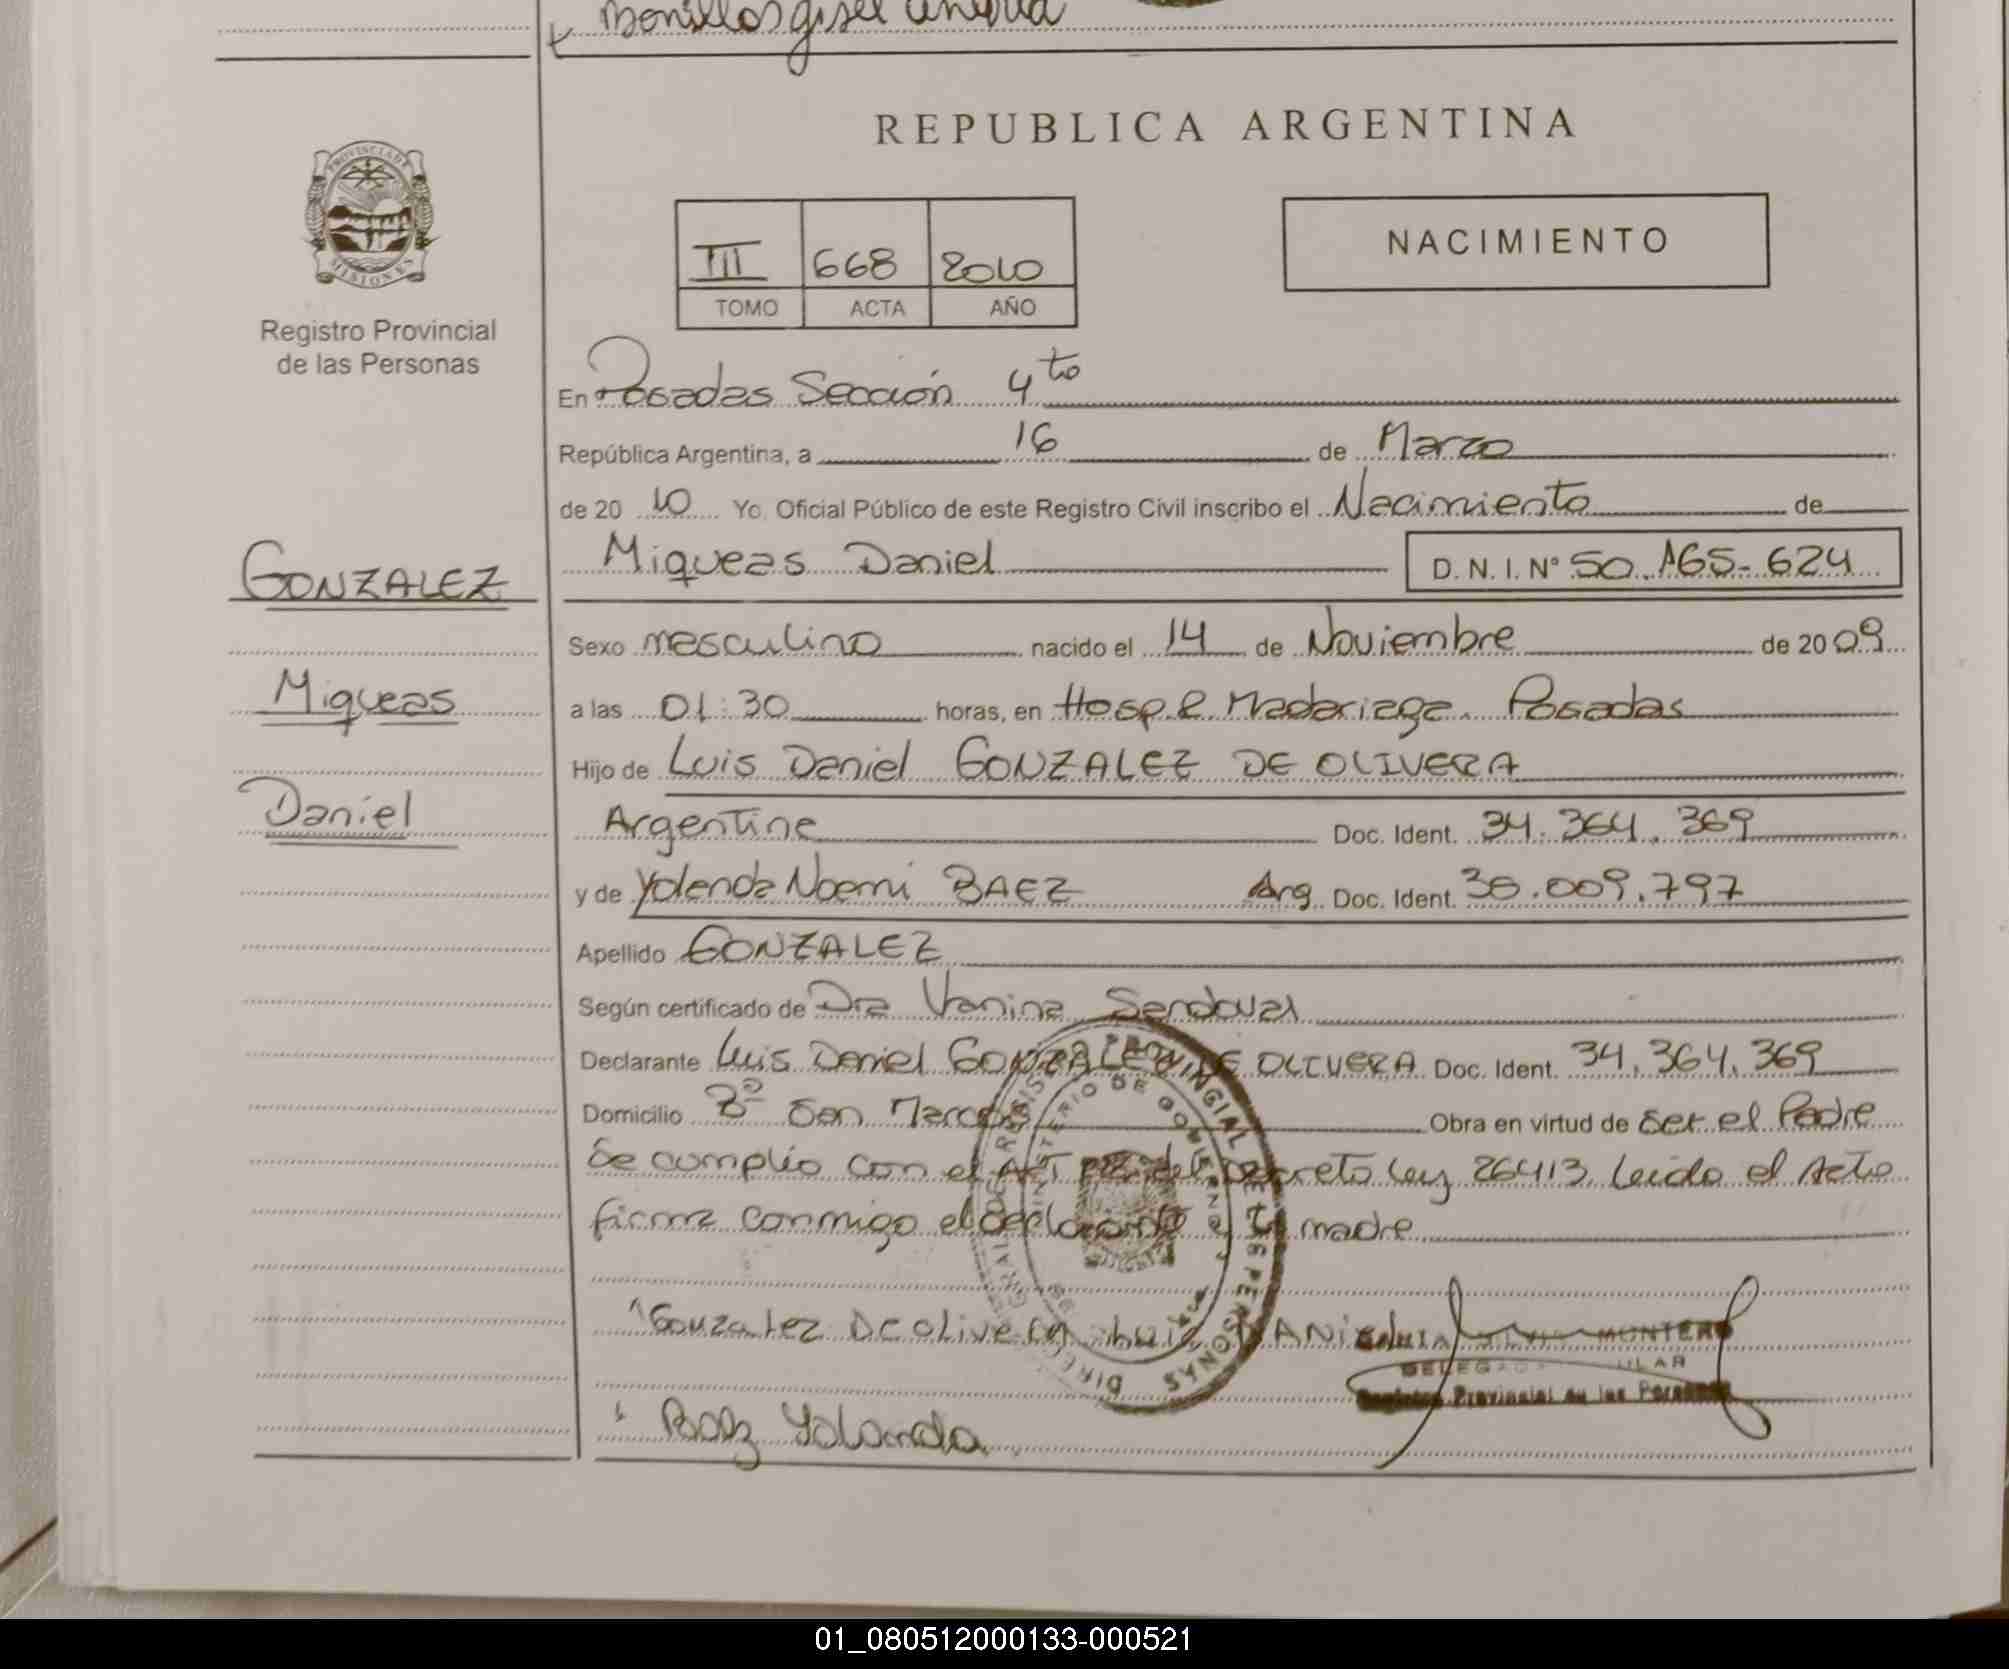 Bonillas gisel
REPUBLICA ARGENTINA
PROVINCIA DE
MISIONES
Registro Provincial
de las Personas
III 668 2010
TOMO ACTA AÑO
NACIMIENTO
En Posadas Sección 4to
República Argentina, a 16 de Marzo
de 20 10 Yo, Oficial Público de este Registro Civil inscribo el Nacimiento de
GONZALEZ
Miqueas Daniel D. N. I. N° 50.165-624
Sexo masculino nacido el 14 de Noviembre de 20 09
Miqueas
a las 01:30 horas, en Hosp. R. Madariaga. Posadas
Hijo de Luis Daniel GONZALEZ DE OLIVERA
Daniel
Argentina Doc. Ident. 34.364.369
y de Yolanda Noemi BAEZ Arg. Doc. Ident. 38.009.797
Apellido GONZALEZ
Según certificado de Dra Vanina Sandoval
Declarante Luis Daniel GONZALEZ DE OLIVERA Doc. Ident. 34.364.369
Domicilio B° San Marcos Obra en virtud de Ser el Padre
Se cumplio con el ART del Decreto Ley 26413. Leido el Acta
firma conmigo el declarante y la madre
Gonzalez De Olivera Luis DANiel
MONTERO
Registro Provincial de las Personas
Baez Yolanda
01_080512000133-000521